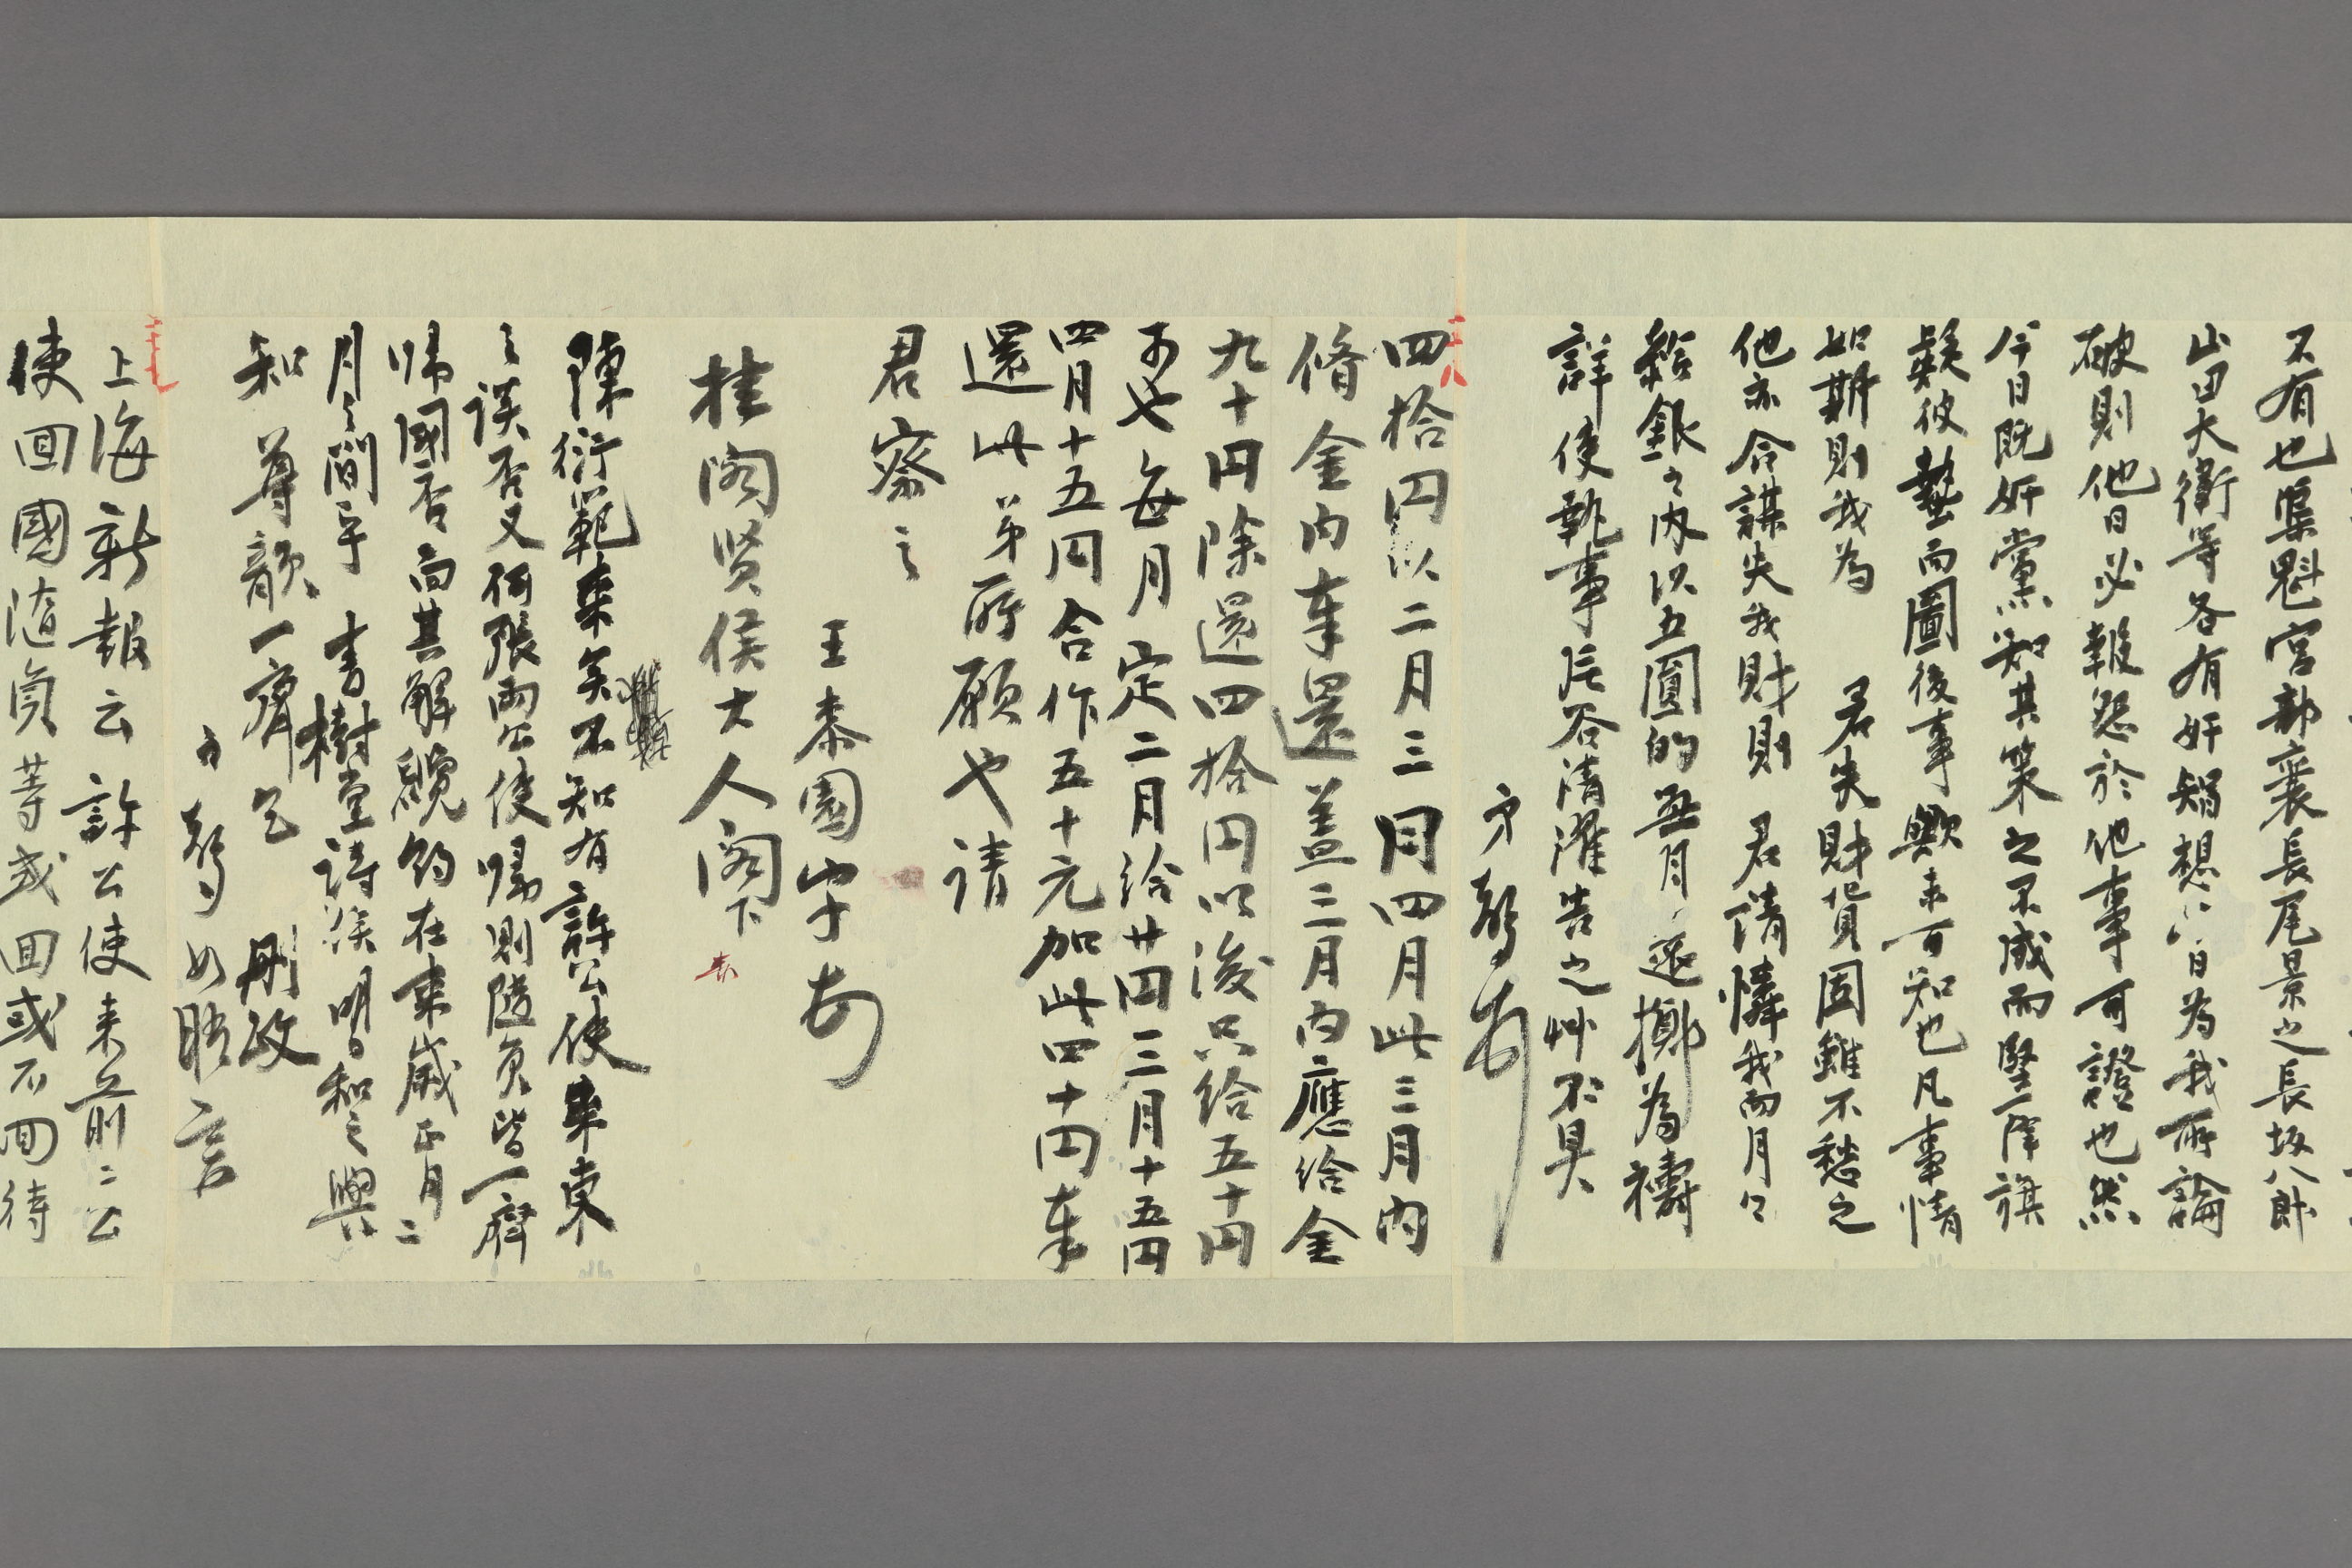 不有也渠魁宮部襄長尾景之長坂八郎
山田大衛等各有奸 想公日為我所論
破則他日必報怨於他事可證也然
今日既奸黨知其策之不成而堅降旗
疑彼藝而圖後事歟未可知也凡事情
如斯則我為 君失財貨固雖不愁之
他亦合謀失我財則 君請憐我而月々
給銀之內以五圓的每月 擲為禱
詳使執事 否清濯告之艸不具
弟 
四拾円以二月三月四月此三月內
脩金內奉還蓋三月內應給金
九十円除還四拾円以後只給五十円
可也每月定二月給廿円三月十五円
四月十五円合作五十元加此四十円奉
還此弟所願也請
君察之
王泰園字
桂閣賢侯大人閣下
陳衍範來矣不知有許公使來東
之談否又何張兩公使歸則隨員皆一齊
歸國否而其解纜約在來歲正月二
月之間乎 書樹堂詩 明日和之與
和 尊韻一齊乞 刪政
如晤言
上海新報云許公使來前二公
使回國隨員等或回或不回待